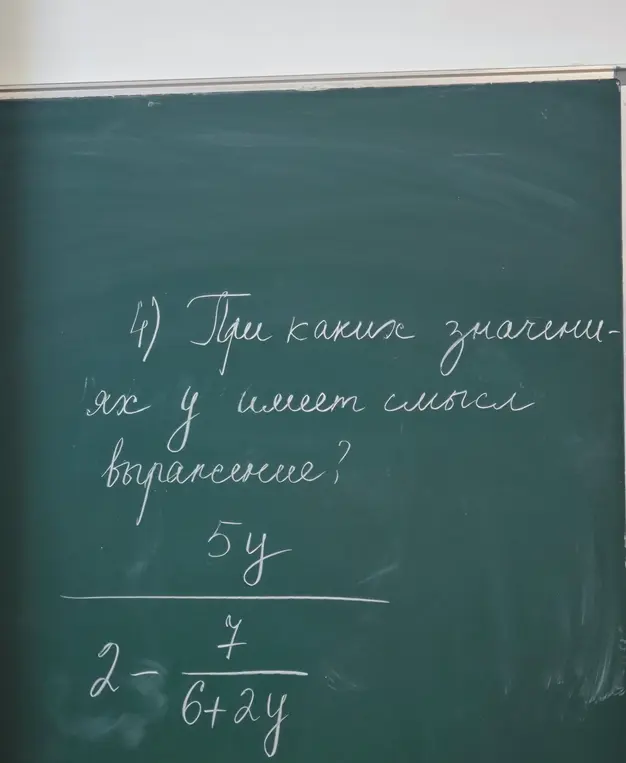 4) При каких значени-
ях у имеет смысл
выражение?
5y
2 - 7
6+2y